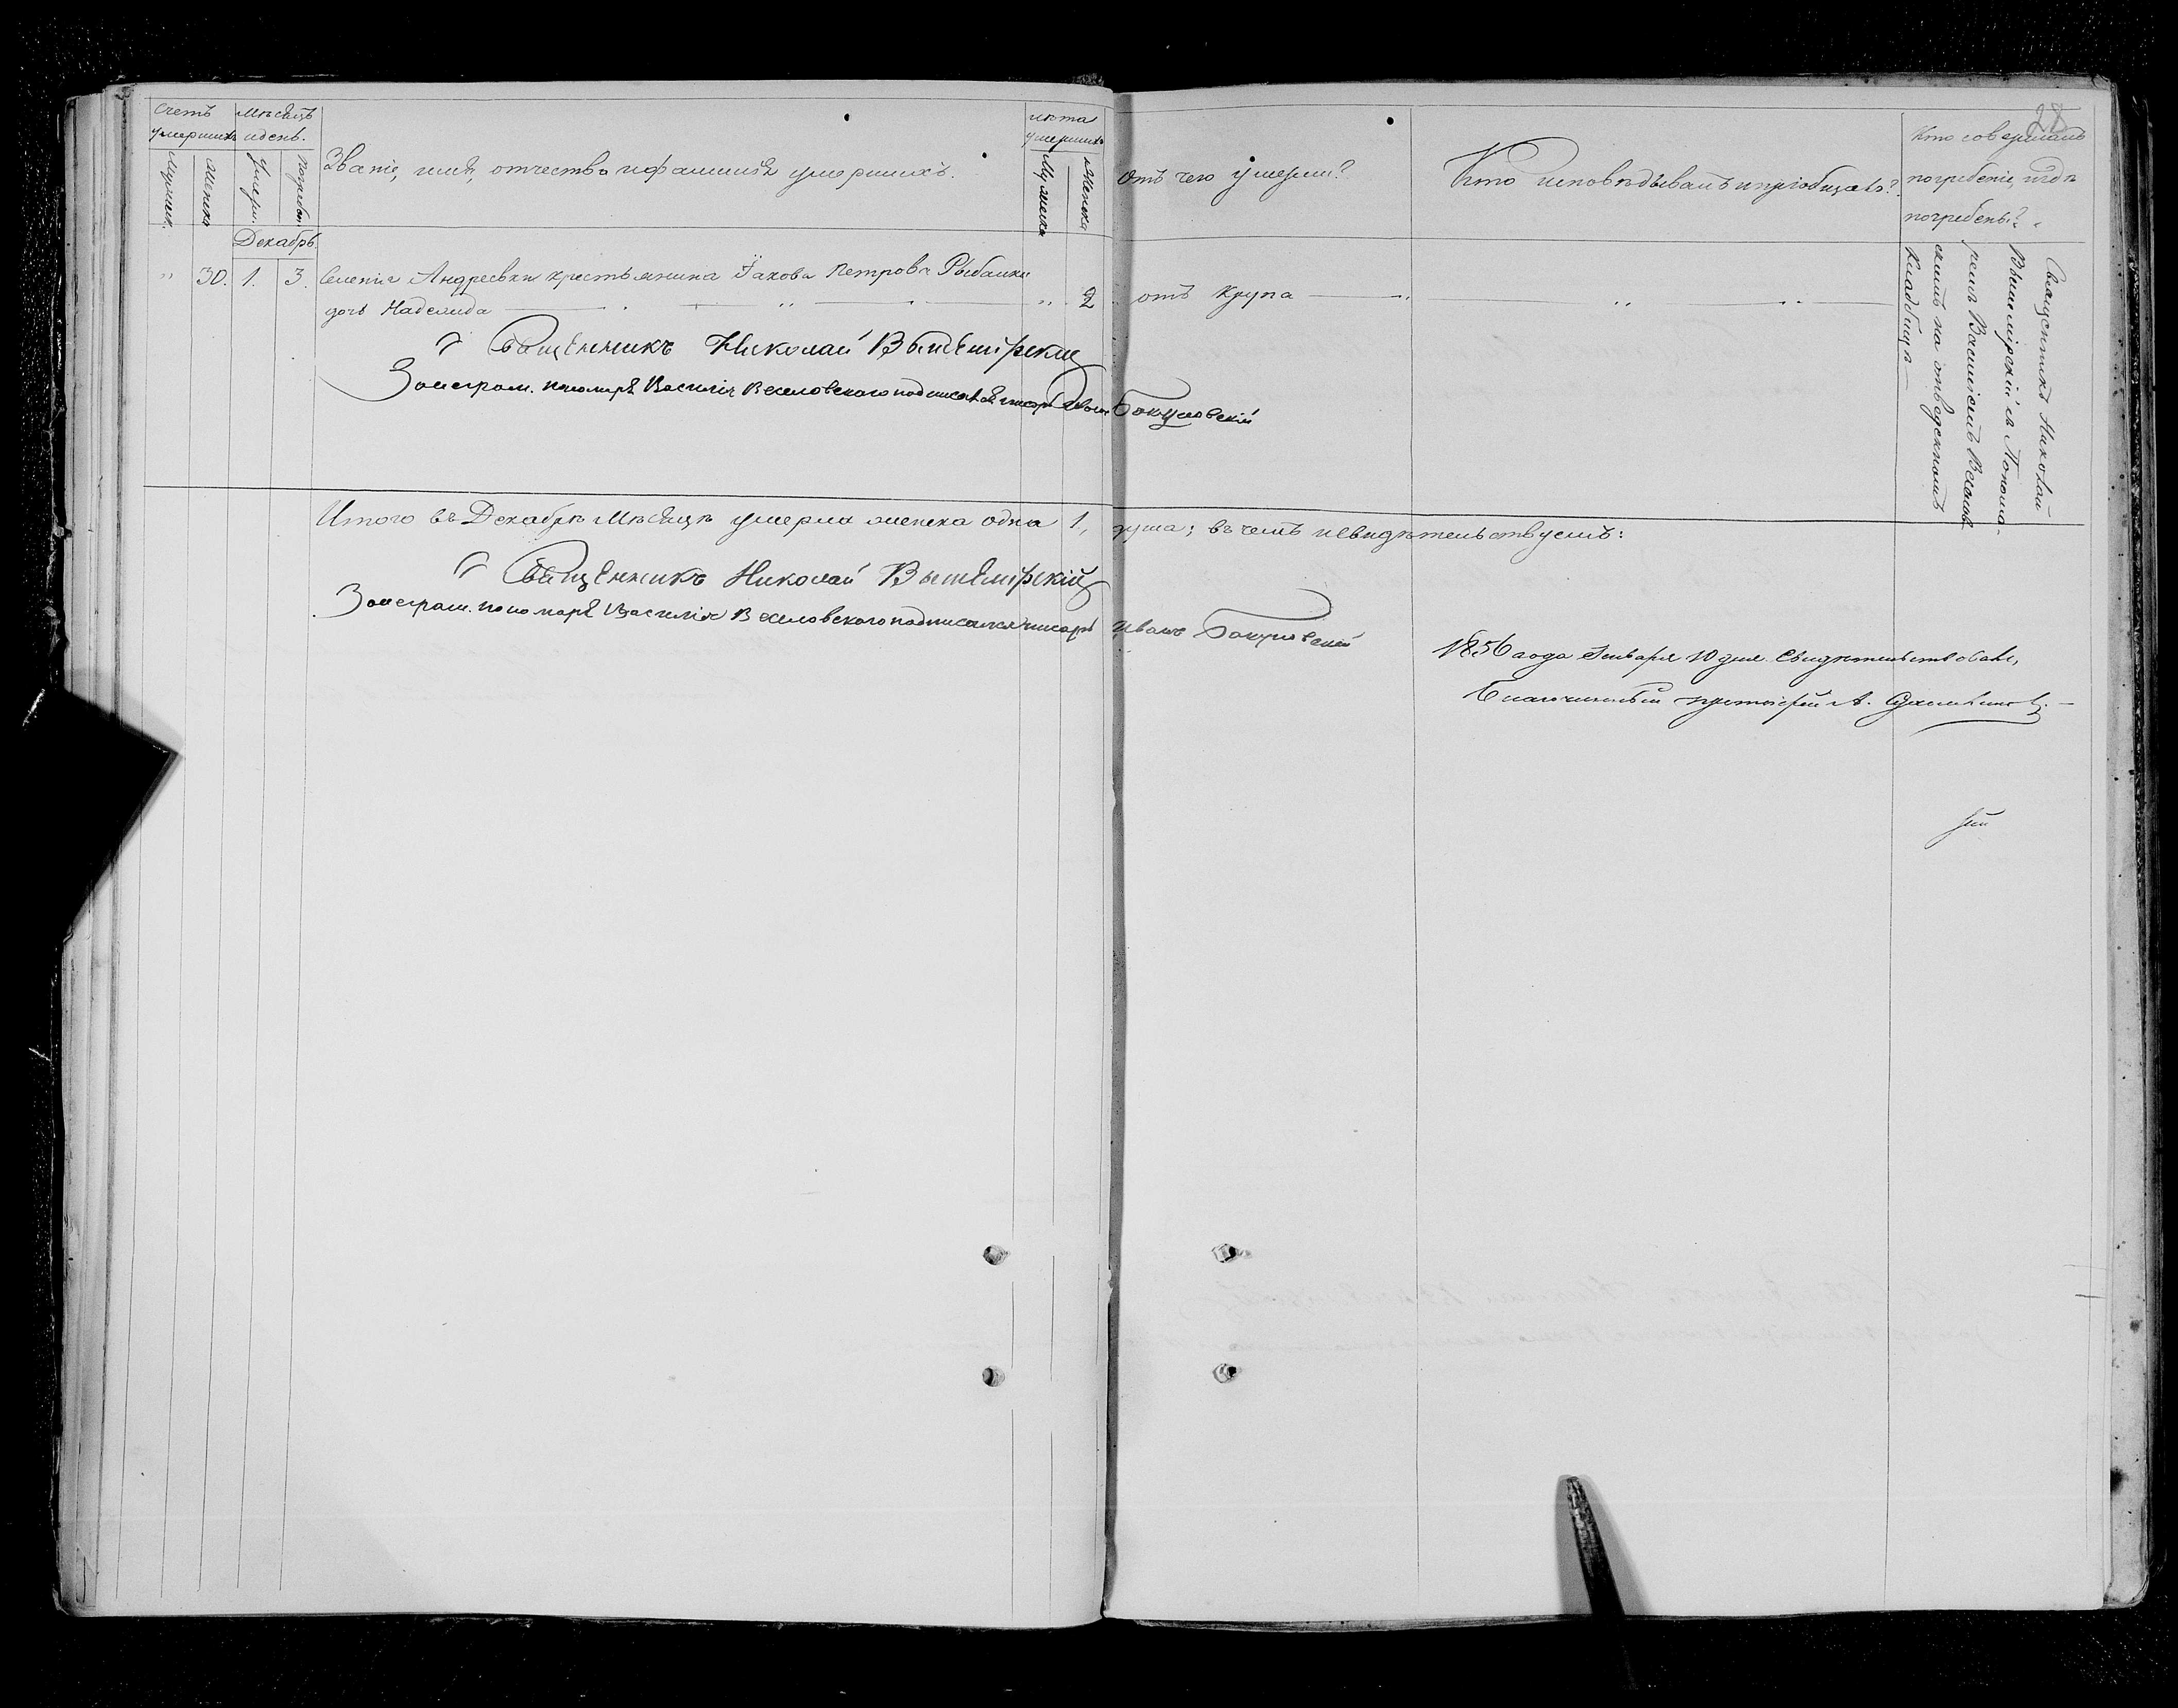 28
Счетъ умершихъ
Мѣсяцъ и день.
Званіе, имя, отчество и фамилія умершихъ.
лѣта умершихъ
Отъ чего умерли?
Кто исповѣдывалъ и пріобщалъ?
Кто совершалъ
погребеніе, и гдѣ
погребены?
Мужеск.
Женска
Умерш.
Погребен.
Мужеска
Женска
Декабрь.
" 30. 1. 3. Селенія Андреевки крестьянина Іакова Петрова Рыбалки
дочь Надежда " 2 отъ Крупа
Священникъ Николай
Вышемірскій съ Понома-
ремъ Василіемъ Веселов-
скимъ на отведенномъ
Кладбищѣ
Священникъ Николай Вышемірскій
За неграм. пономаря Василія Веселовскаго подписался писарь Иванъ
Итого въ Декабрѣ Мѣсяцѣ умерла женска одна 1, душа; въ чемъ и свидѣтельствуемъ:
Священникъ Николай Вышемірскій
За неграм. пономаря Василія Веселовскаго подписался писарь Иванъ
1856 года Января 10 дня Свидѣтельствовалъ,
Благочинный протоіерей А.